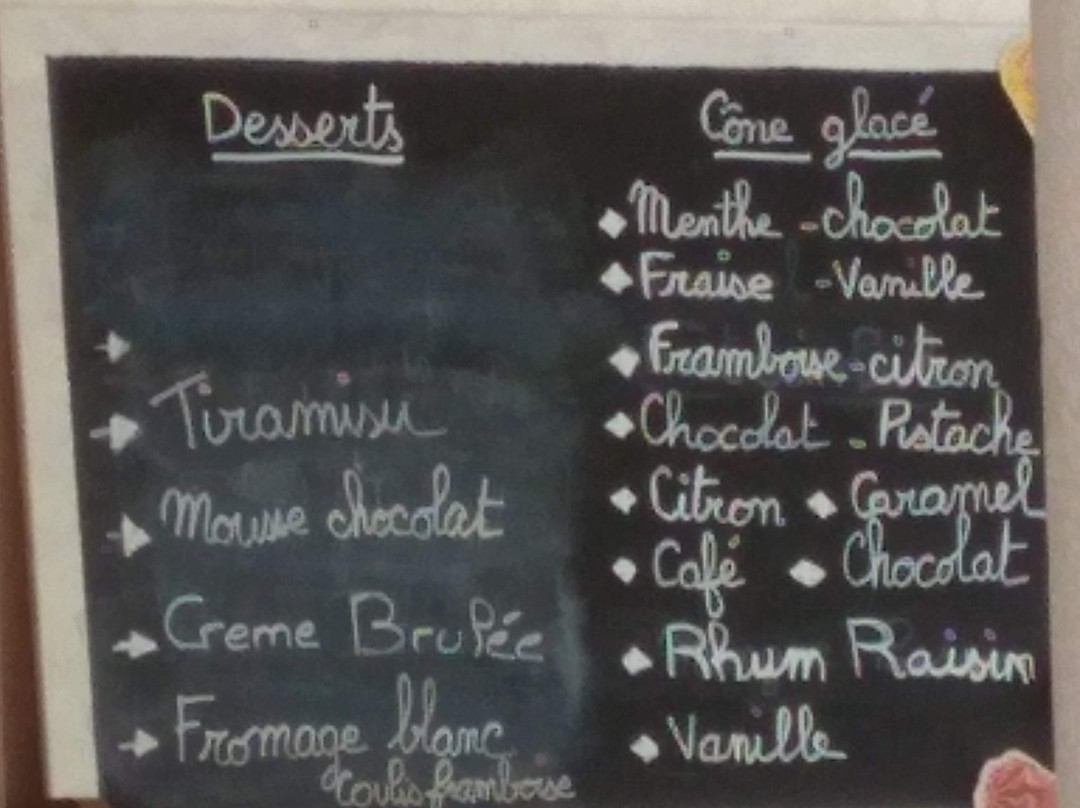 Desserts
Tiramisu
Mousse chocolat
Creme Brulée
Fromage blanc
Coulis framboise
Cône glacé
Menthe - chocolat
Fraise - Vanille
Framboise - citron
Chocolat - Pistache
Citron Caramel
Café Chocolat
Rhum Raisin
Vanille